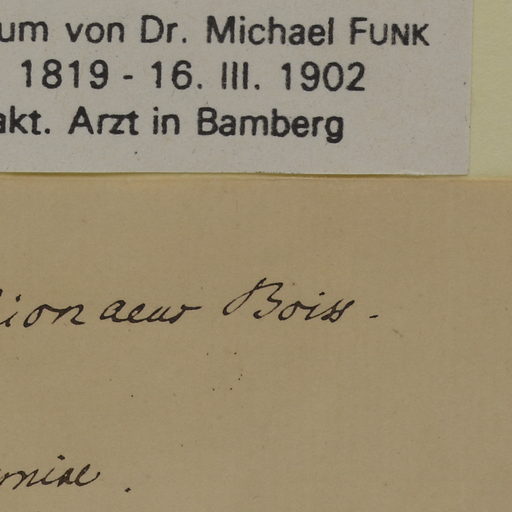 um von Dr. Michael FUNK
1819 - 16. III. 1902
akt. Arzt in Bamberg
ionaeus Boiss.
niae.